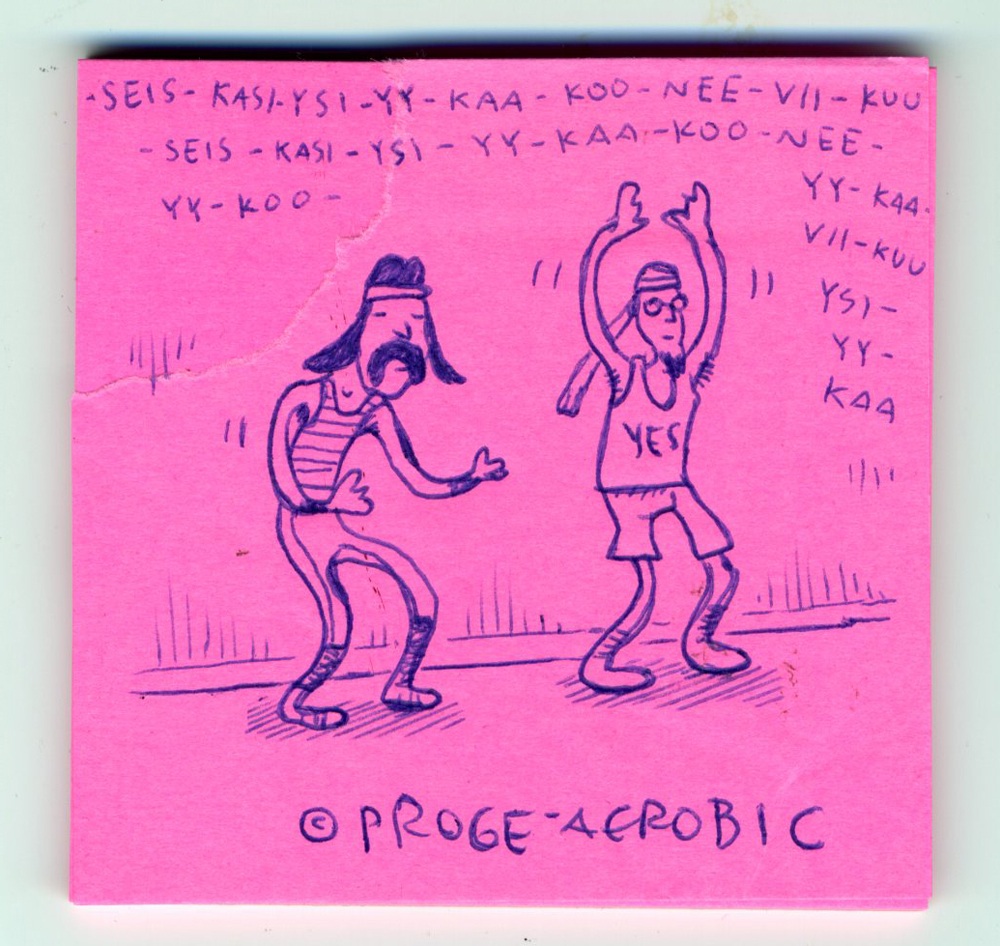 -SEIS- KASI-YSI-YY-KAA-KOO-NEE-VII-KUU
-SEIS-KASI-YSI-YY-KAA-KOO-NEE-
YY-KOO-
YY-KAA-
VII-KUU
YSI-
YY-
KAA
YES
© PROGE-AEROBIC